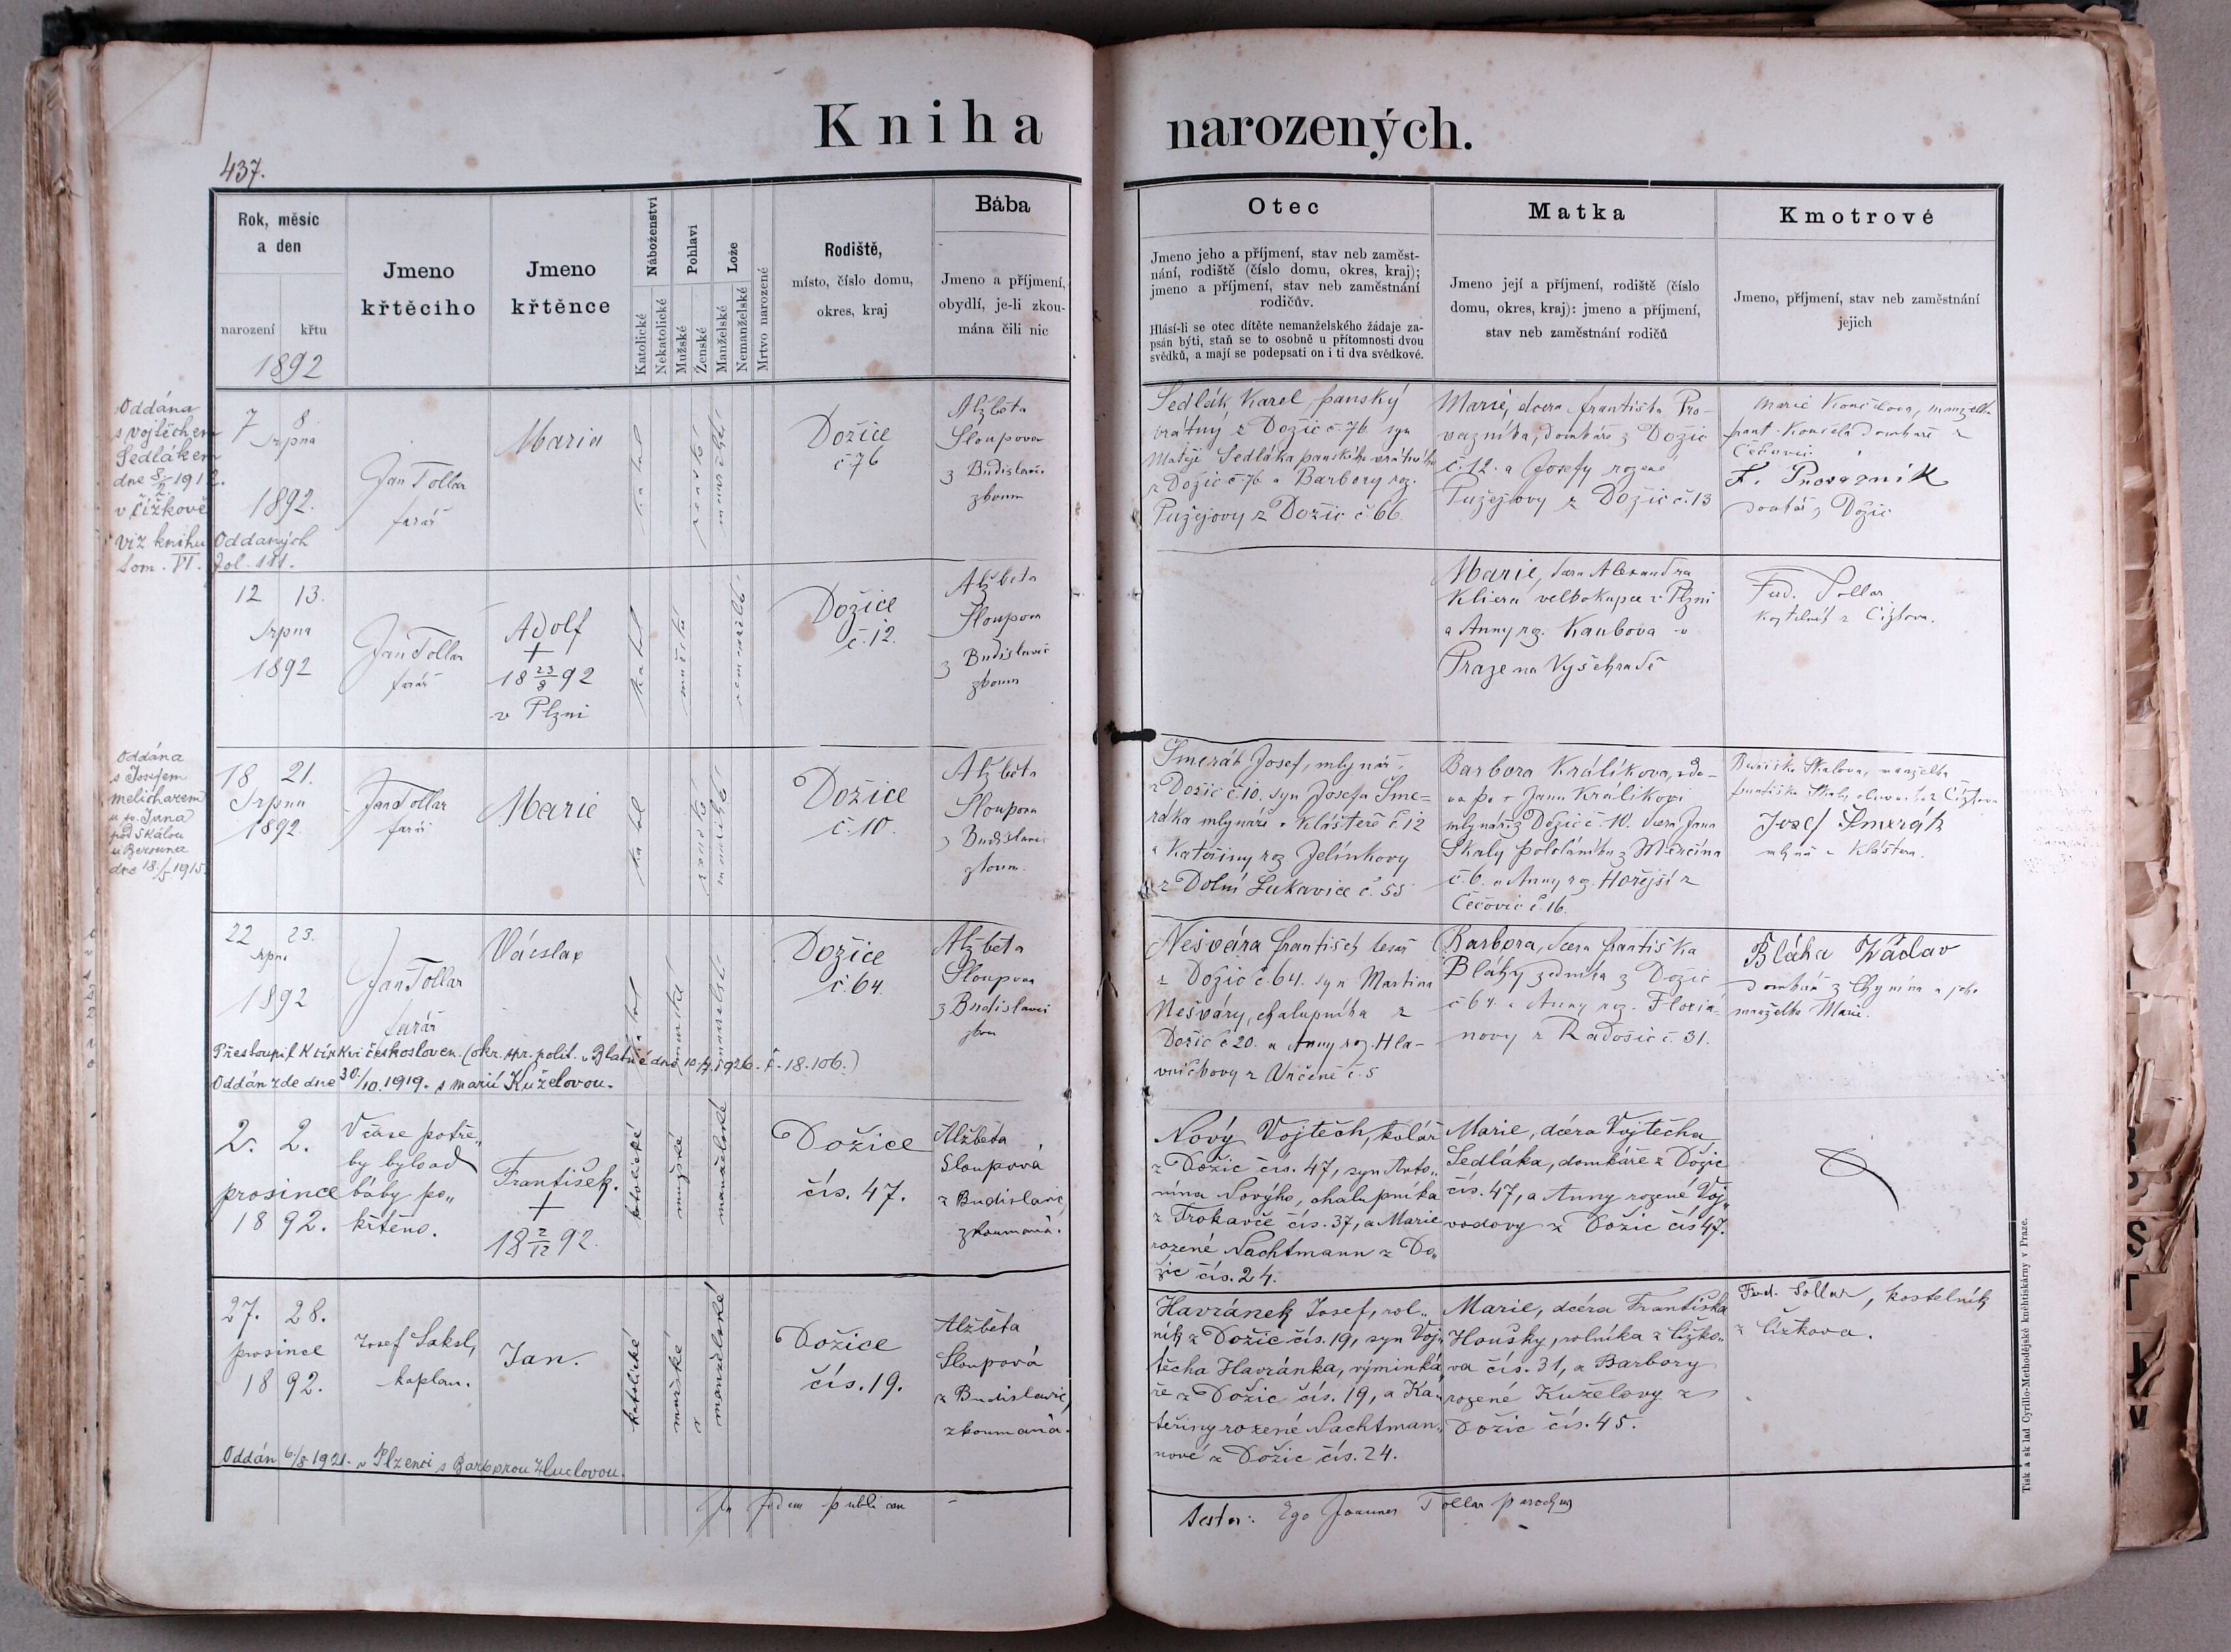 Kniha narozených.
437.
Rok, měsíc
a den
narození křtu
1892
Jmeno
křtěcího
Jmeno
křtěnce
Náboženství
Katolické
Nekatolické
Pohlaví
Mužské
Ženské
Lože
Manželské
Nemanželské
Mrtvo narozené
Rodiště,
místo, číslo domu,
okres, kraj
Bába
Jmeno a příjmení,
obydlí, je-li zkou-
mána čili nic
Otec
Jmeno jeho a příjmení, stav neb zaměst-
nání, rodiště (číslo domu, okres, kraj);
jmeno a příjmení, stav neb zaměstnání
rodičův.
Hlásí-li se otec dítěte nemanželského žádaje za-
psán býti, staň se to osobně u přítomnosti dvou
svědků, a mají se podepsati on i ti dva svědkové.
Matka
Jmeno její a příjmení, rodiště (číslo
domu, okres, kraj): jmeno a příjmení,
stav neb zaměstnání rodičů
Kmotrové
Jmeno, příjmení, stav neb zaměstnání
jejich
Oddána
s vojtěchem
Sedlákem
dne 8/2 1912.
v Čížkově
viz knihu Oddaných
tom. VI. fol. 111.
7 8
Srpna
1892.
Jan Tollar
farář
Maria
Dožice
č 76
Alžběta
Sloupova
z Budislavi
zkoum
Sedlák Karel, panský
vrátný z Dožic č. 76 syn
Matěje Sedláka panského vrátného
z Dožic č. 76 a Barbory roz.
Pužejovy z Dožic č. 66.
Marie, dcera Františka Pro-
vazníka, domkáře z Dožic
č. 12. a Josefy rozené
Pužejovy z Dožic č. 13
Marie Končelova, manželka
Frant. Končela domkáře z
Čečovic
F. Provazník
domkář z Dožic
12 13.
Srpna
1892
Jan Tollar
farář
Adolf
+
18 23/8 92
v Plzni
katol
mužské
nemanžel
Dožice
č. 12.
Alžběta
Sloupova
z Budislavic
zkoum
Marie, dcera Alexandra
Kliera velkokupce v Plzni
a Anny roz. Kaubova v
Praze na Vyšehradě
Ferd. Tollar
kostelník z Čížkova.
Oddána
s Josefem
melicharem
u sv. Jana
pod Skálou
u Berouna
dne 18./5. 1915.
18 21.
Srpna
1892
Jan Tollar
farář
Marie
Dožice
č. 10.
Alžběta
Sloupova
z Budislavic
zkoum.
Smerák Josef, mlynář
z Dožic č. 10. syn Josefa Sme=
ráka mlynáře v Klášteře č 12
a Kateřiny roz Jelínkovy
z Dolní Lukavice č. 55
Barbora Králikova, vdo-
va po Janu Králikovi
mlynáři z Dožic č. 10. dcera Jana
Skaly pololáníka z Měrčína
č. 6. a Anny roz. Hořejší z
Čečovic č. 16.
Josef Smerák
mlynář z Kláštera.
22 23.
srpna
1892
Jan Tollar
farář
Václav
Dožice
č. 64.
Alžběta
Sloupova
z Budislavic
zkou
Nešvára František tesař
z Dožic č. 64. syn Martina
Nešváry, chalupníka z
Dožic č 20. a Anny roz. Hla-
vničkovy z Určené č. 5
Barbora, dcera Františka
Bláhy zedníka z Dožic
č 64. a Anny roz. Floriá-
novy z Radošic č. 31.
Bláha Wáclav
domkář z Chynína a jeho
manželka Marie.
Přestoupil k církvi českosloven. (okr. spr. polit. v Blatné dne 10/4. 1926. č. 18.106.)
Oddán zde dne 30./10. 1919. s marií Kuželovou.
2. 2.
prosince
1892.
V čase potře„
by byl od
báby po„
křtěno.
František.
+
18 2/12 92.
katolické
mužské
manželské
Dožice
čís. 47.
Alžběta
Sloupová
z Budislavic,
zkoumaná.
Nový Vojtěch, kolář
z Dožic čís. 47, syn Anto„
nína Nového, chalupníka
z Trokavče čís. 37, a Marie
rozené Nachtmann z Do„
žic čís. 24.
Marie, dcéra Vojtěcha
Sedláka, domkáře z Dožic
čís. 47, a Anny rozené Voj„
vodovy z Dožic čís 47.
27. 28.
prosince
1892.
Josef Saksl,
kaplan.
Jan.
katolické
mužské
manželské
Dožice
čís. 19.
Alžběta
Sloupová
z Budislavic,
zkoumaná.
Havránek Josef, rol„
ník z Dožic čís. 19, syn Voj„
těcha Havránka, výminká„
ře z Dožic čís. 19, a Ka„
teřiny rozené Nachtman„
nové z Dožic čís. 24.
Marie, dcéra Františka
Housky, rolníka z Čížko„
va čís. 31, a Barbory
rozené Kuželovy z
Dožic čís. 45.
Ferd. Tollar, kostelník
z Čížkova.
Oddán 6/8. 1921. v Plzenci s Barborou Huclovou.
In fidem publicam
testor: Ego Joannes Tollar parochus
Tisk a sklad Cyrillo-Methodějské knihtiskárny v Praze.